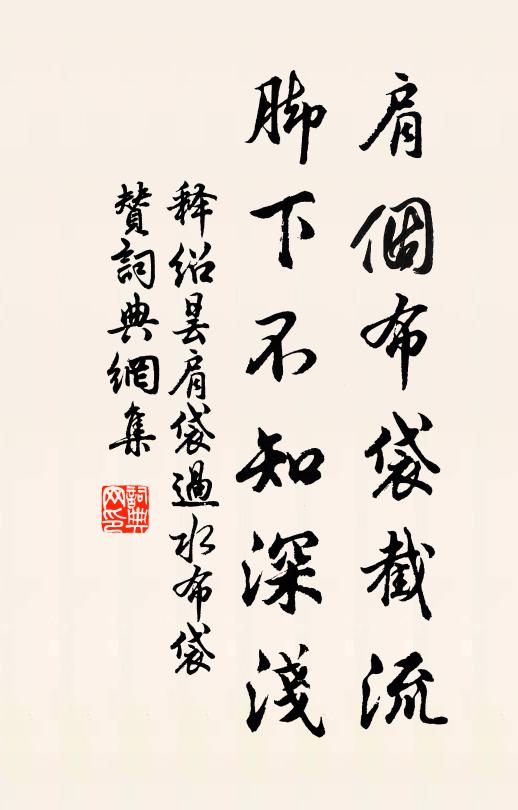 肩個布袋截流
脚下不知深淺
释绍昙肩袋過水布袋
贊詞典網集
詞典
网印